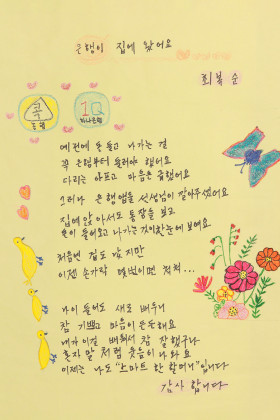 은행이 집에 왔어요
최복순
콕
은행
1Q
하나은행
예전에 돈 들고 나가는 걸
꼭 은행부터 들려야 했어요
다리는 아프고 마음은 급했어요
그러나 은행 앱을 선생님이 깔아주셨어요
집에 앉아서도 통장을 보고
돈이 들어오고 나가는 것이 한눈에 보여요
처음엔 겁도 났지만
이젠 손가락 몇번이면 척척...
나이 들어도 새로 배우니
참 기쁘고 마음이 든든해요
내가 이걸 배워서 참 잘 했구나
혼자 말처럼 웃음이 나와요
이제는 나도 "스마트 한 할머니"입니다
감사 합니다